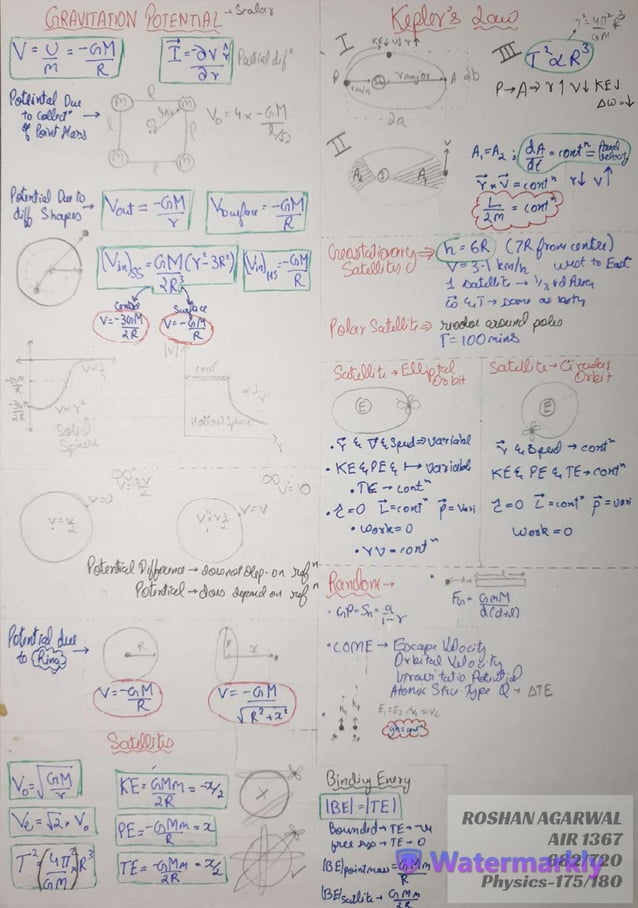 GRAVITATION POTENTIAL → Scalar
V = U/m = -GM/R
I = -∂V/∂r r̂
Partial difⁿ
Poteintal Due to collectⁿ of Point Mass →
M M
M M
l
l
V₀ = 4 × -GM
Potential Due to diff Shapes →
Vout = -GM/r
Vsurface = -GM/R
(Vin)SS = GM(r²-3R²)/2R³
(Vin)HS = -GM/R
Centre
Surface
V = -3GM/2R
V = -GM/R
|V|
constⁿ
-GM/R
-3GM/2R
Solid Sphere
Hollow Sphere
r
V=0
V=0
V=V
Potential Difference → does not dep. on refⁿ
Potential → does depend on refⁿ
Potential due to Ring →
R
R
x
V = -GM/R
V = -GM/√R²+x²
Satellites
V₀ = √GM/r
Ve = √2 × V₀
T² = (4π²/GM) × R³
KE = GMm/2R = -x/2
PE = -GMm/R = x
TE = -GMm/2R = x/2
Kepler's Law
I
KE↓ V↓ r↑
P
rmin
rmajor
A
2b
2a
III
T² = 4π²/GM R³
T² ∝ R³
P → A → r↑ V↓ KE↓
Δω=↓
II
A₂
S
A₁
v
A₁ = A₂ ; dA/dt = constⁿ = Areal velocity
r × v = constⁿ r↓ v↑
L/2m = constⁿ
Geostationary Satellites →
h = 6R (7R from center)
V = 3.1 km/h west to East
1 satellite → 1/3 rd Area
Polar Satellite ⇒ revolve around poles
T = 100 mins
Satellite → Elliptal Orbit
E
KE & PE & variable
• TE → constⁿ
• τ=0 L=constⁿ p=vari
• Work=0
• rv = constⁿ
Satellite → Circular Orbit
E
r & speed → constⁿ
KE & PE & TE → constⁿ
τ=0 L=constⁿ p=vari
Work=0
Random →
• GP = S∞ = a/1-r
d
l
FG = GmM/d(d+l)
• COME → Escape Velocity
Orbital Velocity
Gravitatio Potential
Atomic Struc Type Q → ΔTE
Bindiy Enery
|BE| = |TE|
Bounded → TE → -ve
TE → 0
|BE| pointmass = GMm/R
|BE| satllite → GMm/2R
ROSHAN AGARWAL
AIR 1367
682/720
Physics-175/180
Watermarkly